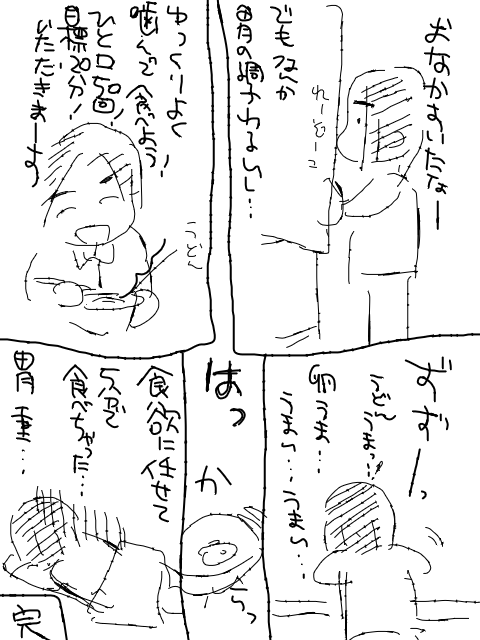 おなかすいたなー
れーぞーこ
でもなんか
胃の調子わるいし…
ゆっくりよく
噛んで食べよう!
ひと口50回!
目標20分!
いただきまーす
ことっ
ずずーっ
うどん
うまっ!!
卵うま…
うまい…うまい…
はっ
からっ
食欲に任せて
5分で
食べちゃった…
胃重…
完